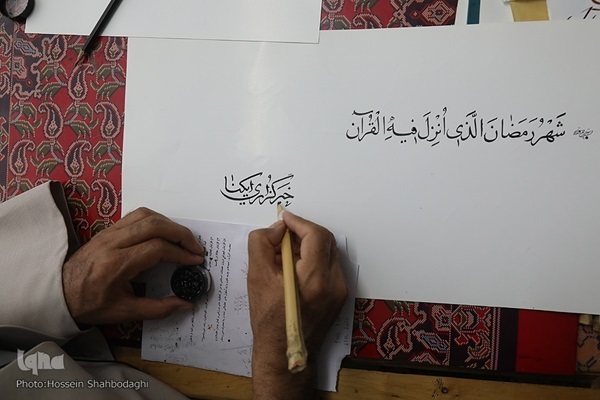 شَهْرُ رَمَضَانَ الَّذِی أُنْزِلَ فِیهِ الْقُرْآن
خبرگزاری ایکنا
iqna
Photo:Hossein Shahbodaghi